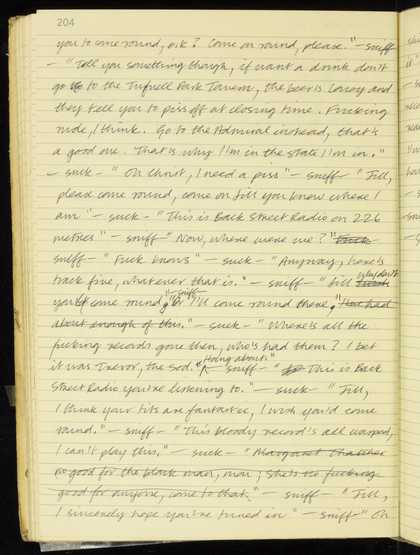 204
you to come round, o.k? Come on round, please." - sniff
- "Tell you something though, if want a drink don't
go to to the Tufnell Park Tavern, the beer is lousy and
they tell you to piss off at closing time. Fucking
rude, I think. Go to the Admiral instead, that's
a good one. That is why I'm in the state I'm in."
- suck - "Oh Christ, I need a piss" - sniff - "Jill,
please come round, come on Jill you know where I
am" - suck - "This is Back Street Radio on 226
metres" - sniff - "Now, where were we?"
sniff - "Fuck knows" - suck - "Anyway, here's
track five, whatever that is." - sniff - "Jill why don't
you come round," - sniff - "or I'll come round there," "I've had
about enough of this." - suck - "Where's all the
fucking records gone then, who's had them? I bet
it was Trevor, the sod. "Hang about." - sniff - "This is Back
Street Radio you're listening to." - suck - "Jill,
I think your tits are fantastic, I wish you'd come
round." - sniff - "This bloody record's all warped,
I can't play this." - suck - "Margaret Thatcher
no good for the black man, man; she's no fucking
good for anyone, come to that." - sniff - "Jill,
I sincerely hope you're tuned in" - sniff - "Oh